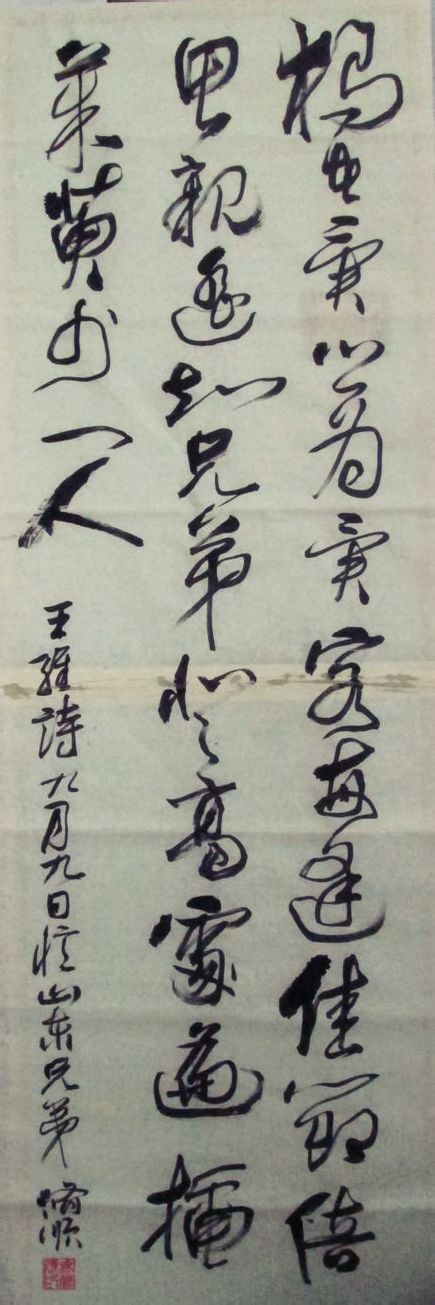 獨在異鄉為異客每逢佳節倍
思親遙知兄弟登高處遍插
茱萸少一人
王維詩九月九日憶山東兄弟